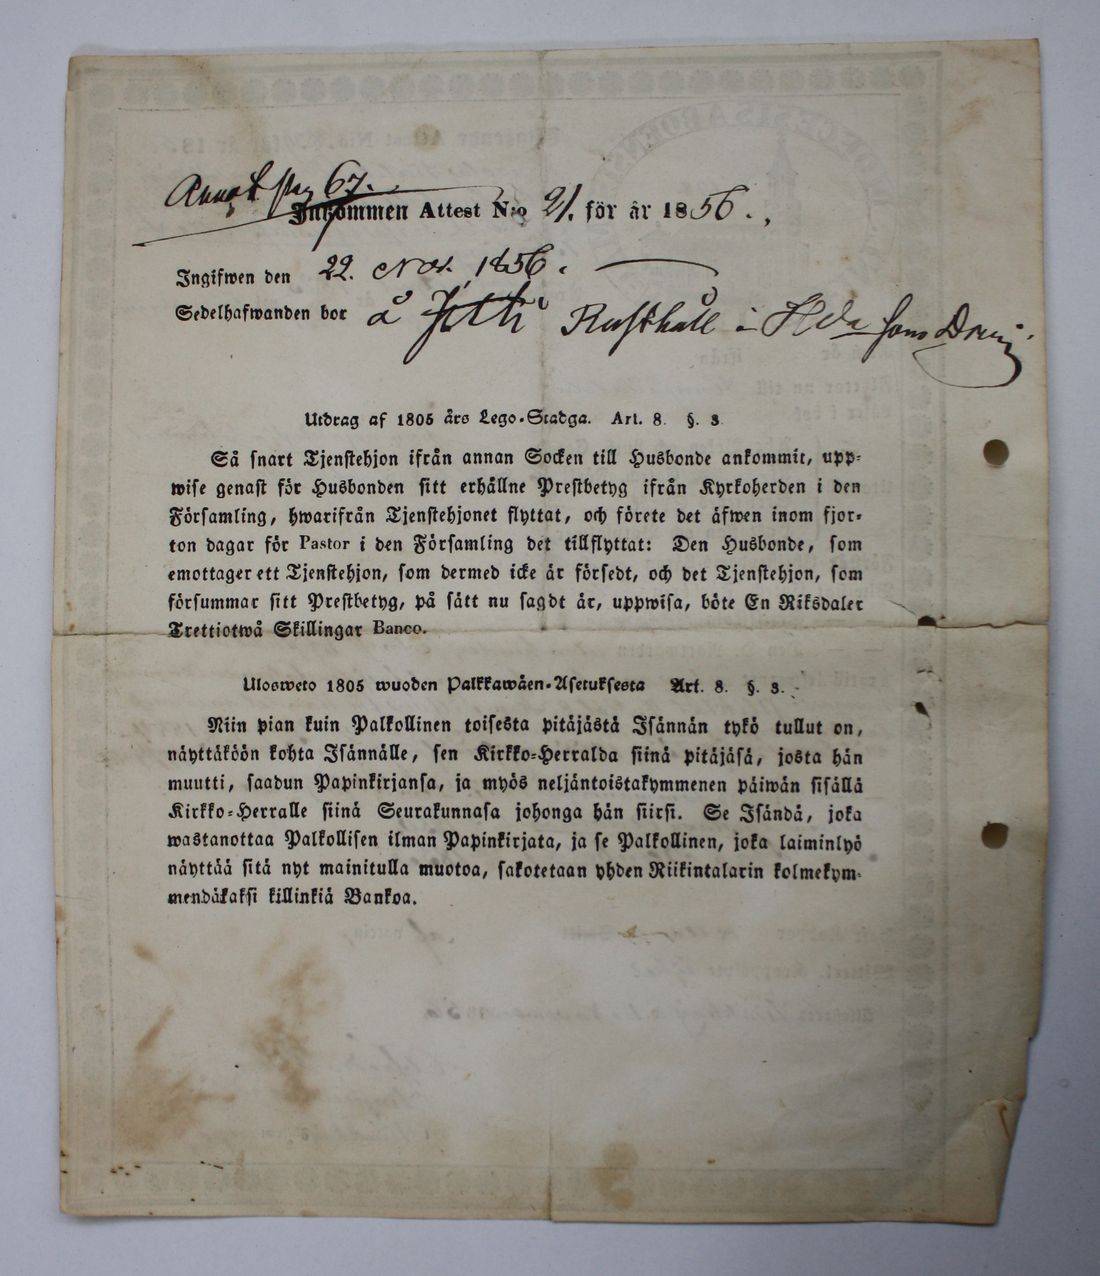 Annot. pag 67.
Inkommen Attest N:o 21. för år 1856.
Ingifwen den 22. Nov. 1856.
Sedelhafwanden bor å Rusthåll i som Dräng.
Utdrag af 1805 års Lego-Stadga. Art. 8. §. 3.
Så snart Tjenstehjon ifrån annan Socken till Husbonde ankommit, upp-
wise genast för Husbonden sitt erhållne Prestbetyg ifrån Kyrkoherden i den
Församling, hwarifrån Tjenstehjonet flyttat, och förete det äfwen inom fjor-
ton dagar för Pastor i den Församling det tillflyttat: Den Husbonde, som
emottager ett Tjenstehjon, som dermed icke är försedt, och det Tjenstehjon, som
försummar sitt Prestbetyg, på sätt nu sagdt är, uppwisa, böte En Riksdaler
Trettiotwå Skillingar Banco.
Ulosweto 1805 wuoden Palkkawäen-Asetuksesta Art. 8. §. 3.
Niin pian kuin Palkollinen toisesta pitäjästä Isännän tykö tullut on,
näyttäköön kohta Isännälle, sen Kirkko-Herralda siinä pitäjäsä, josta hän
muutti, saadun Papinkirjansa, ja myös neljäntoistakymmenen päiwän sisällä
Kirkko-Herralle siinä Seurakunnasa johonga hän siirsi. Se Isändä, joka
wastanottaa Palkollisen ilman Papinkirjata, ja se Palkollinen, joka laiminlyö
näyttää sitä nyt mainitulla muotoa, sakotetaan yhden Riikintalarin kolmekym-
mendäkaksi killinkiä Bankoa.